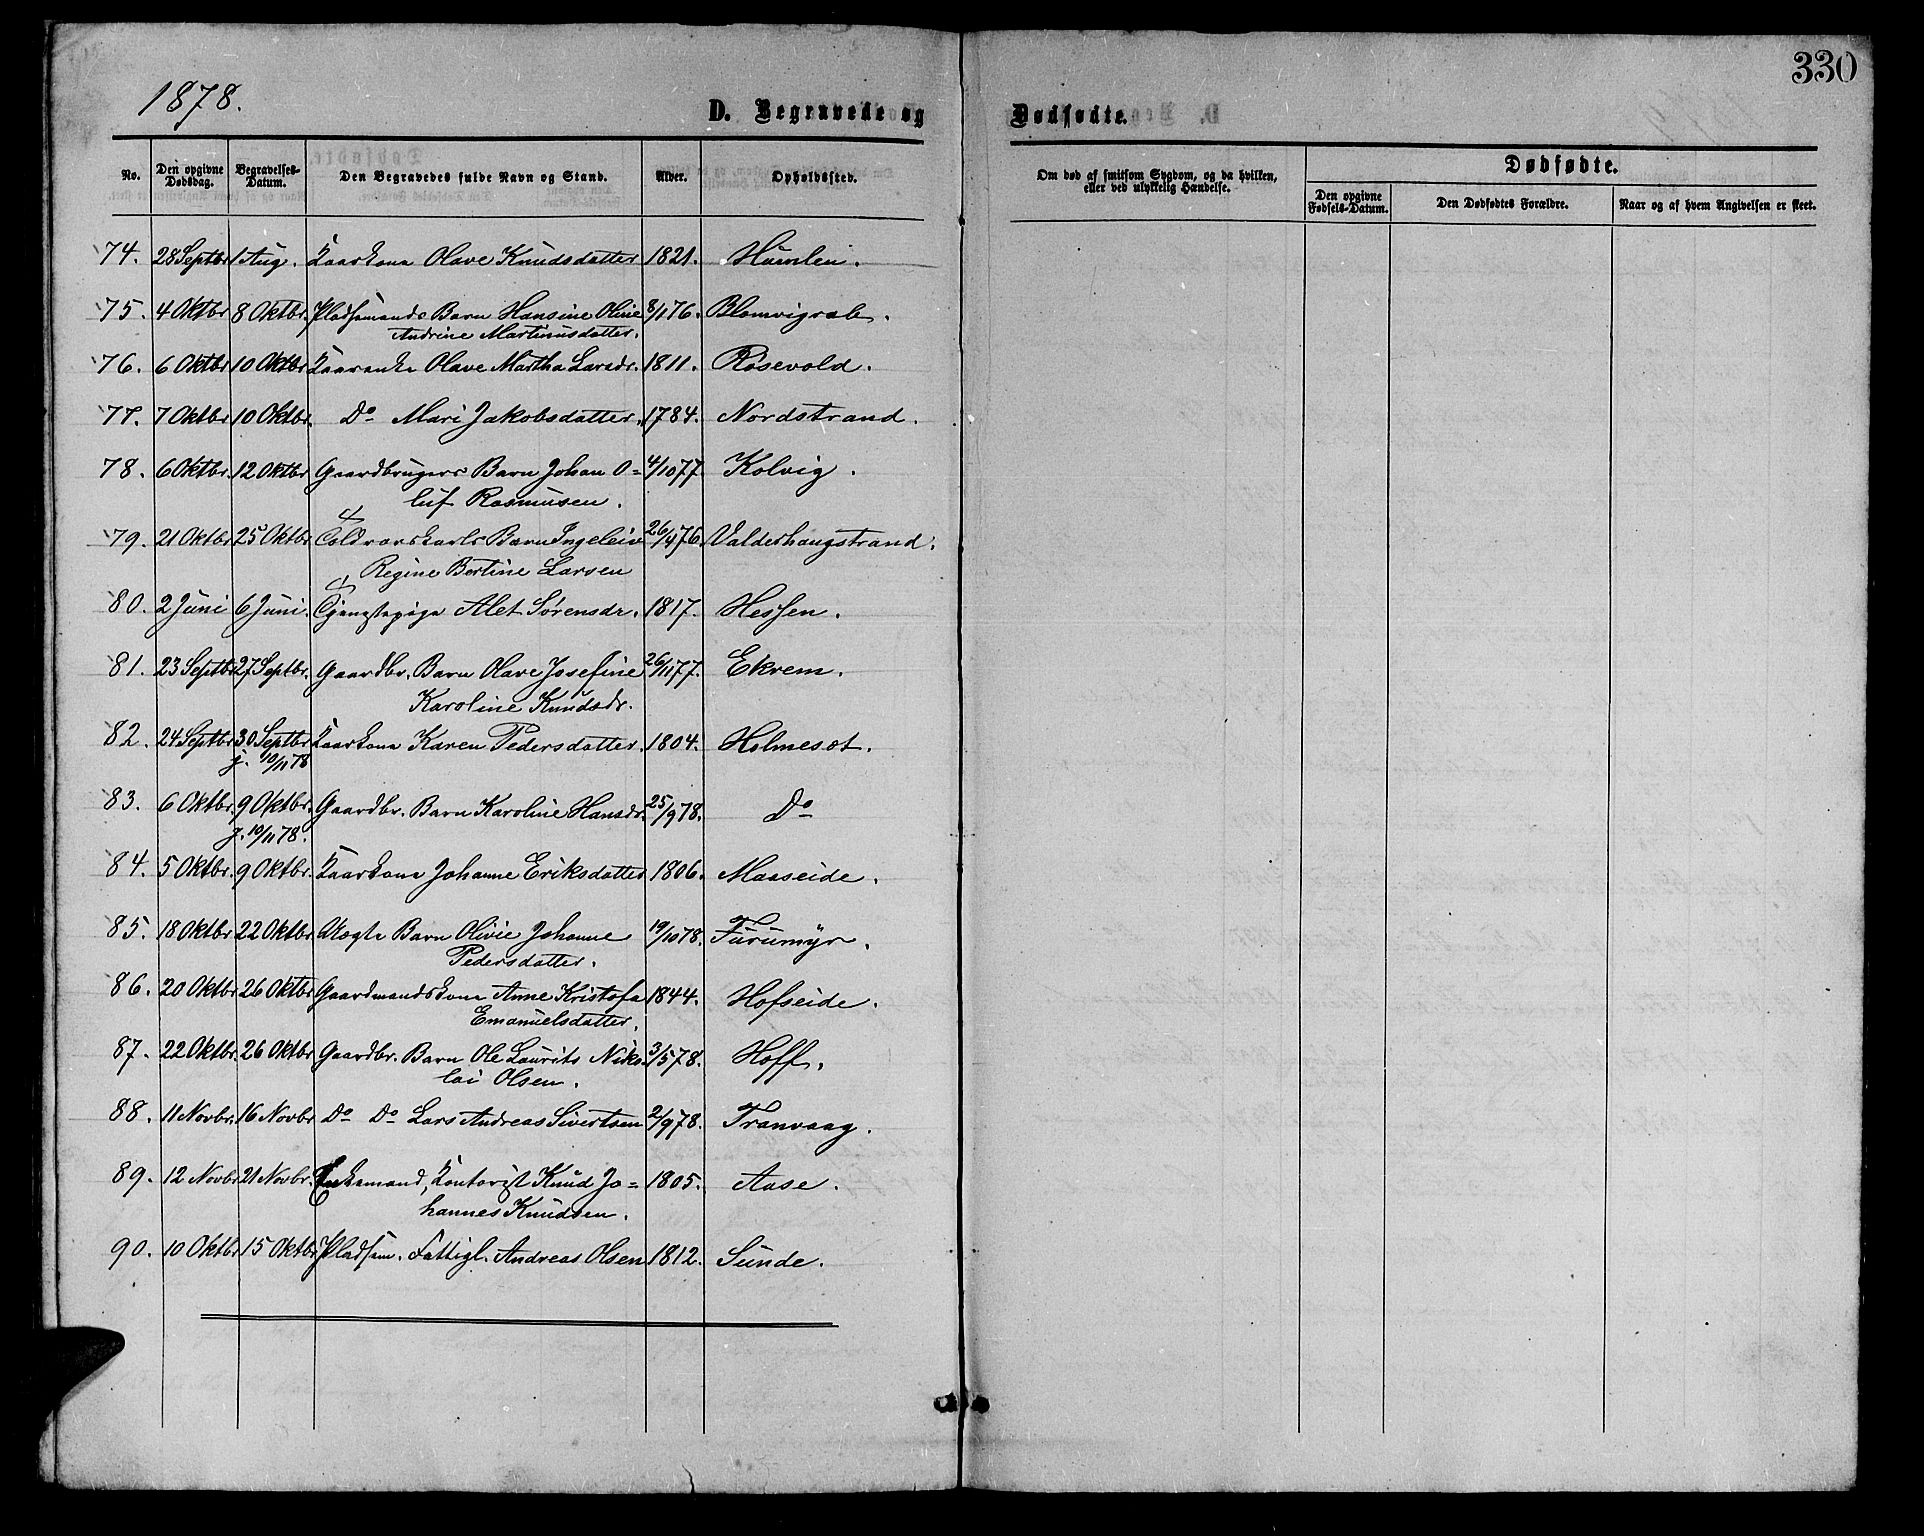 330
1878.
D. Begravede og Dødfødte.
No. Den opgivne Dødsdag. Begravelses-Datum. Den Begravedes fulde Navn og Stand. Alder. Opholdssted. Om død af smitsom Sygdom, og da hvilken, eller ved ulykkelig Hændelse. Dødfødte.
Den opgivne Fødsels-Datum. Den Dødfødtes Forældre. Naar og af hvem Angivelsen er skeet.
74. 28 Septbr 1 Aug. Kaarkona Olave Knudsdatter 1821. Humlen.
75. 4 Oktbr 8 Oktbr. Pladsemands Barn Hansine Oline 8/1 76. Blomvigrab.
Andrine Martinusdatter.
76. 6 Oktbr 10 Oktbr Kaarenke Olave Martha Larsdr. 1811. Røsevold.
77. 7 Oktbr 10 Oktbr. Do Mari Jakobsdatter. 1784. Nordstrand.
78. 6 Oktbr. 12 Oktbr Gaardbrugers Barn Johan O=
4/10 77. Kolvig.
luf Rasmusen.
79. 21 Oktbr 25 Oktbr Toldvarskarls Barn Ingeleiv 26/4 76. Valderhaugstrand.
Regine Bertine Larsen
80. 2 Juni 6 Juni. Tjenstepige Alet Sørensdr. 1817. Hessen.
81. 23 Septbr 27 Septbr. Gaardbr. Barn Olave Josefine 26/11 77. Ekrem.
Karoline Knudsdr.
82. 24 Septbr 30 Septbr Kaarkona Karen Pedersdatter. 1804. Holmeset.
j. 10/11 78
83. 6 Oktbr. 9 Oktbr. Gaardbr. Barn Karoline Hansdr. 25/9 78. Do
j. 10/11 78.
84. 5 Oktbr. 9 Oktbr. Kaarkona Johanne Eriksdatter 1806. Maaseide.
85. 18 Oktbr 22 Oktbr Uægte Barn Olivie Johanne 19/10 78. Furumyr.
Pedersdatter.
86. 20 Oktbr 26 Oktbr Gaardmandskona Anne Kristofa 1844. Hofseide.
Emanuelsdatter.
87. 22 Oktbr. 26 Oktbr Gaardbr. Barn Ole Laurits Niko 3/5 78. Hoff.
lai Olsen.
88. 11 Novbr. 16 Novbr Do Do Lars Andreas Sivertsen 2/9 78. Tranvaag.
89. 12 Novbr 21 Novbr. Enkemand, Kontorist Knud Jo= 1805. Aase.
hannes Knudsen.
90. 10 Oktbr 15 Oktbr Pladsem. Fattigl. Andreas Olsen 1812. Sunde.